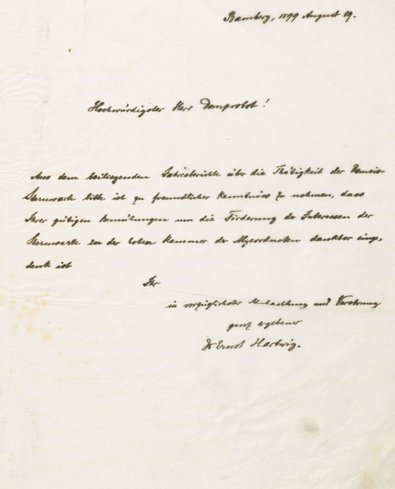 Bamberg, 1899 August 19.
Hochwürdigster Herr Dompropst!
Aus dem beiliegenden Jahresbericht über die Thätigkeit der Remeis-
Sternwarte bitte ich zu freundlicher Kenntniss zu nehmen, dass
Ihrer gütigen Bemühungen um die Förderung der Interessen der
Sternwarte in der hohen Kammer der Abgeordneten dankbar einge-
denk ist
Ihr
in vorzüglichster Hochachtung und Verehrung
ganz ergebener
Dr Ernst Hartwig.